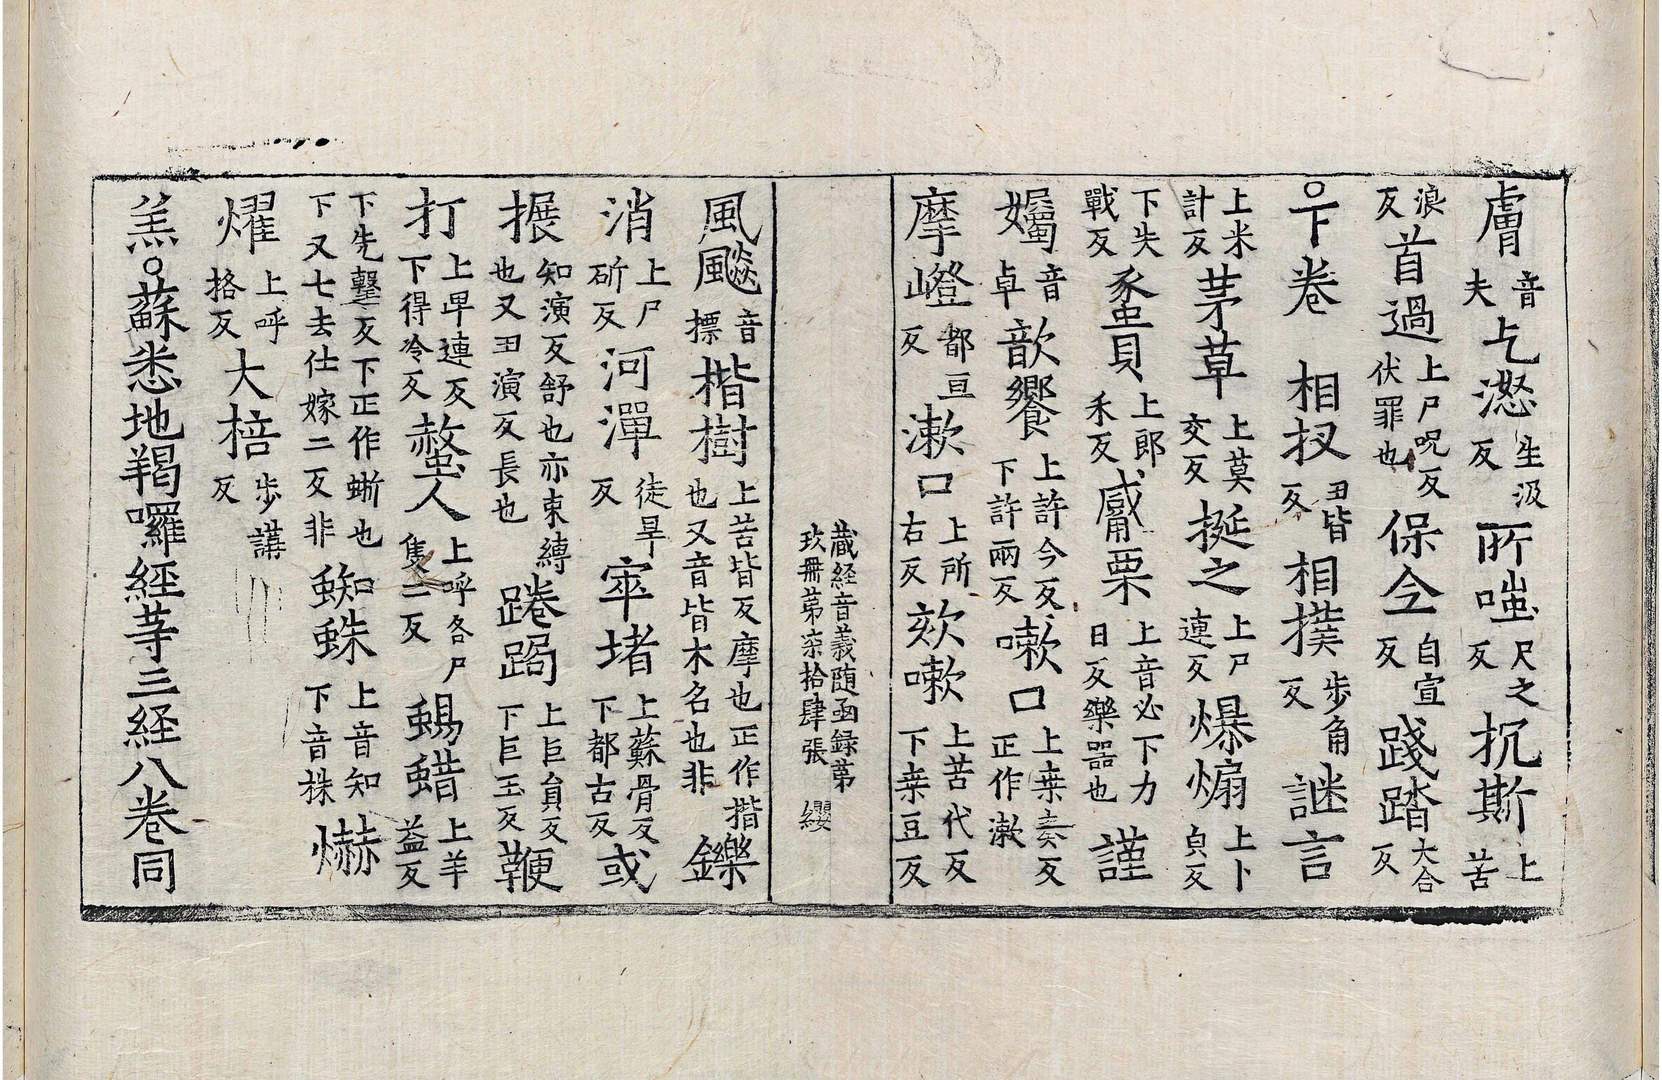 膚音夫𠃵濍生汲反所嗤尺之反抳斯上苦
浪反首過上尸呪反伏罪也保全自宣反踐踏大合反
○下卷 相扠丑皆反相撲步角反謎言
上米計反茅草上莫交反挻之上尸連反爆煽上卜㒵反
下失戰反蠡貝上郎禾反觱栗上音必下力日反樂器也謹
孎音卓歆饗上許今反下許兩反嗽口上桒奏反正作漱
摩嶝都亘反漱口上所右反欬嗽上苦代反下桒豆反
藏経音義随函録苐玖冊苐柒拾肆張 纓
風飈音摽楷樹上苦皆反摩也正作揩也又音皆木名也非鑠
消上尸斫反河潬徒旱反窣堵上蘇骨反下都古反或
搌知演反舒也亦束縛也又丑演反長也踡跼上巨員反下巨玉反鞭
打上卑連反下得冷反螫人上呼各尸隻二反蝪蜡上羊益反
下先擊反下正作蜥也下又七去仕嫁二反非蜘蛛上音知下音株爀
燿上呼格反大棓步講反
羔○蘇悉地羯囉經䓁三経八卷同